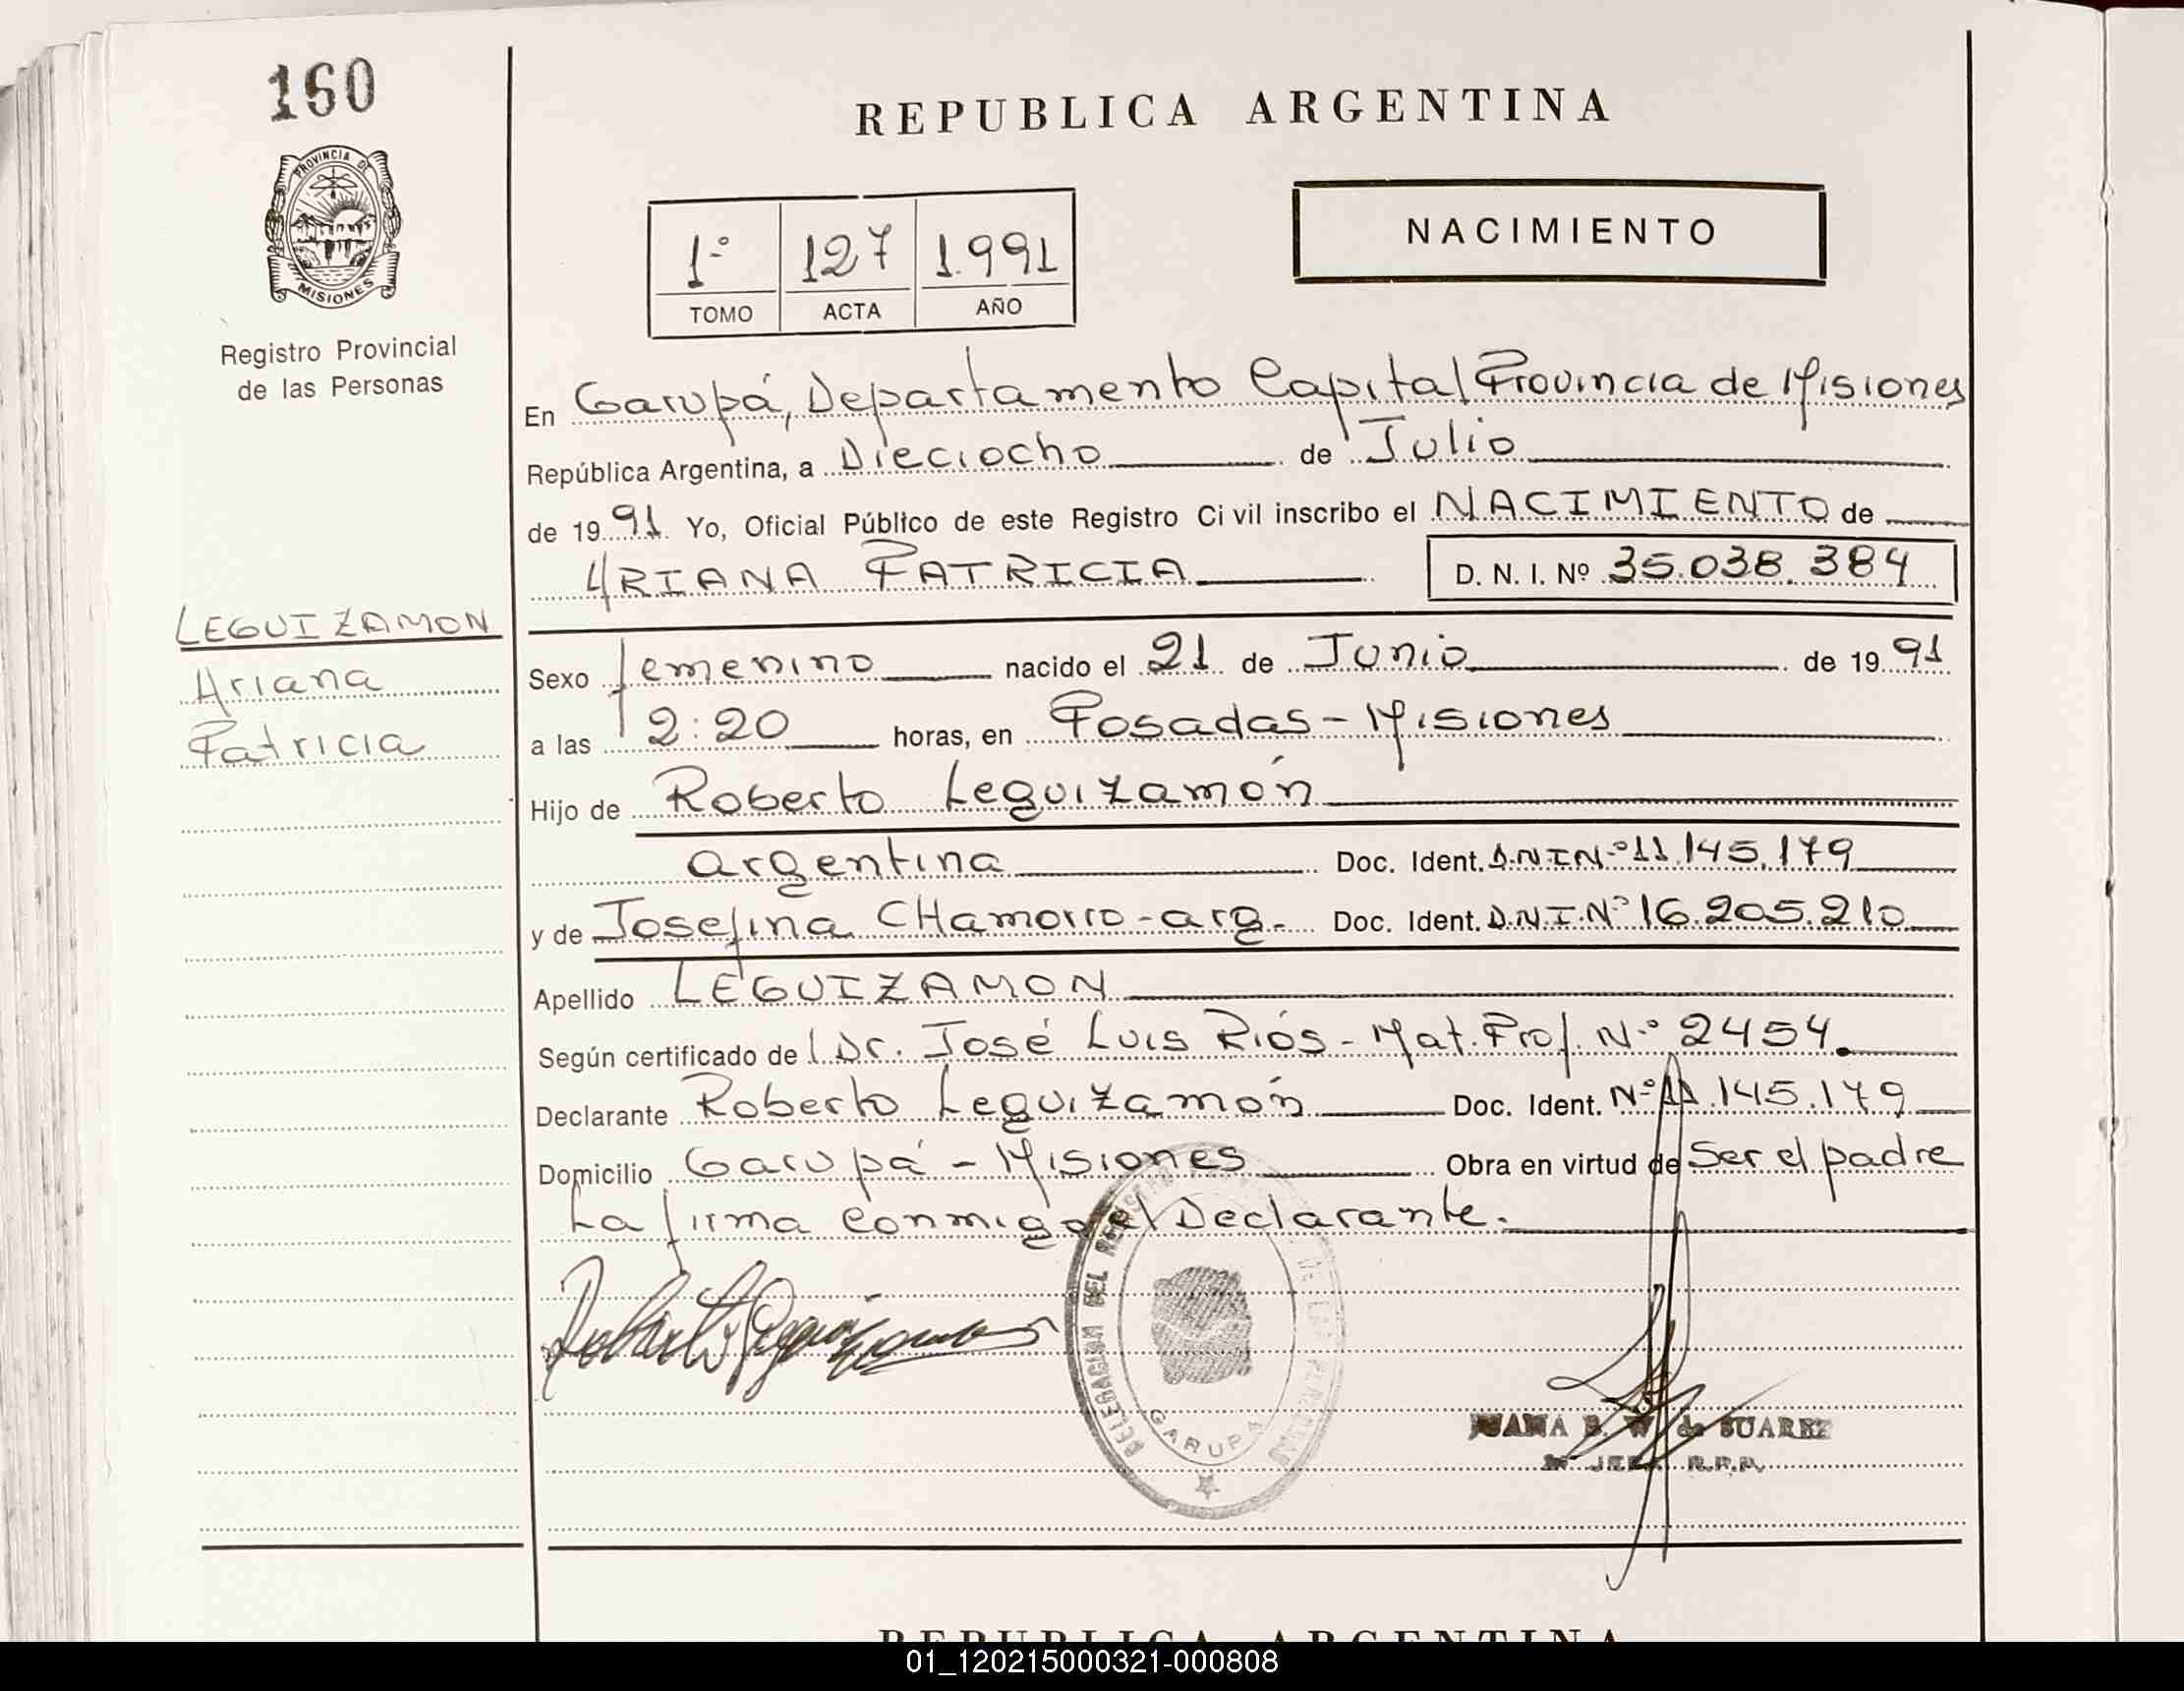 160
PROVINCIA DE
MISIONES
Registro Provincial
de las Personas
REPUBLICA ARGENTINA
1º 127 1.991
TOMO ACTA AÑO
NACIMIENTO
En Garupá, Departamento Capital Provincia de Misiones
República Argentina, a Dieciocho de Julio
de 1991 Yo, Oficial Público de este Registro Civil inscribo el NACIMIENTO de
ARIANA PATRICIA D. N. I. Nº 35.038.384
LEGUIZAMON
Ariana
Patricia
Sexo femenino nacido el 21 de Junio de 1991
a las 2:20 horas, en Posadas - Misiones
Hijo de Roberto Leguizamón
argentina Doc. Ident. D.N.I Nº 11.145.179
y de Josefina CHamorro - arg. Doc. Ident. D.N.I. Nº 16.205.210
Apellido LEGUIZAMON
Según certificado de Dr. José Luis Riós - Mat. Prof. Nº 2454.
Declarante Roberto Leguizamón Doc. Ident. Nº 11.145.179
Domicilio Garupá - Misiones Obra en virtud de Ser el padre
La firma conmigo el Declarante.
Roberto Leguizamon
DELEGACION DEL REGISTRO
GARUPA
JUANA B. W. de SUAREZ
JEFA R.P.P.
REPUBLICA ARGENTINA
01_120215000321-000808